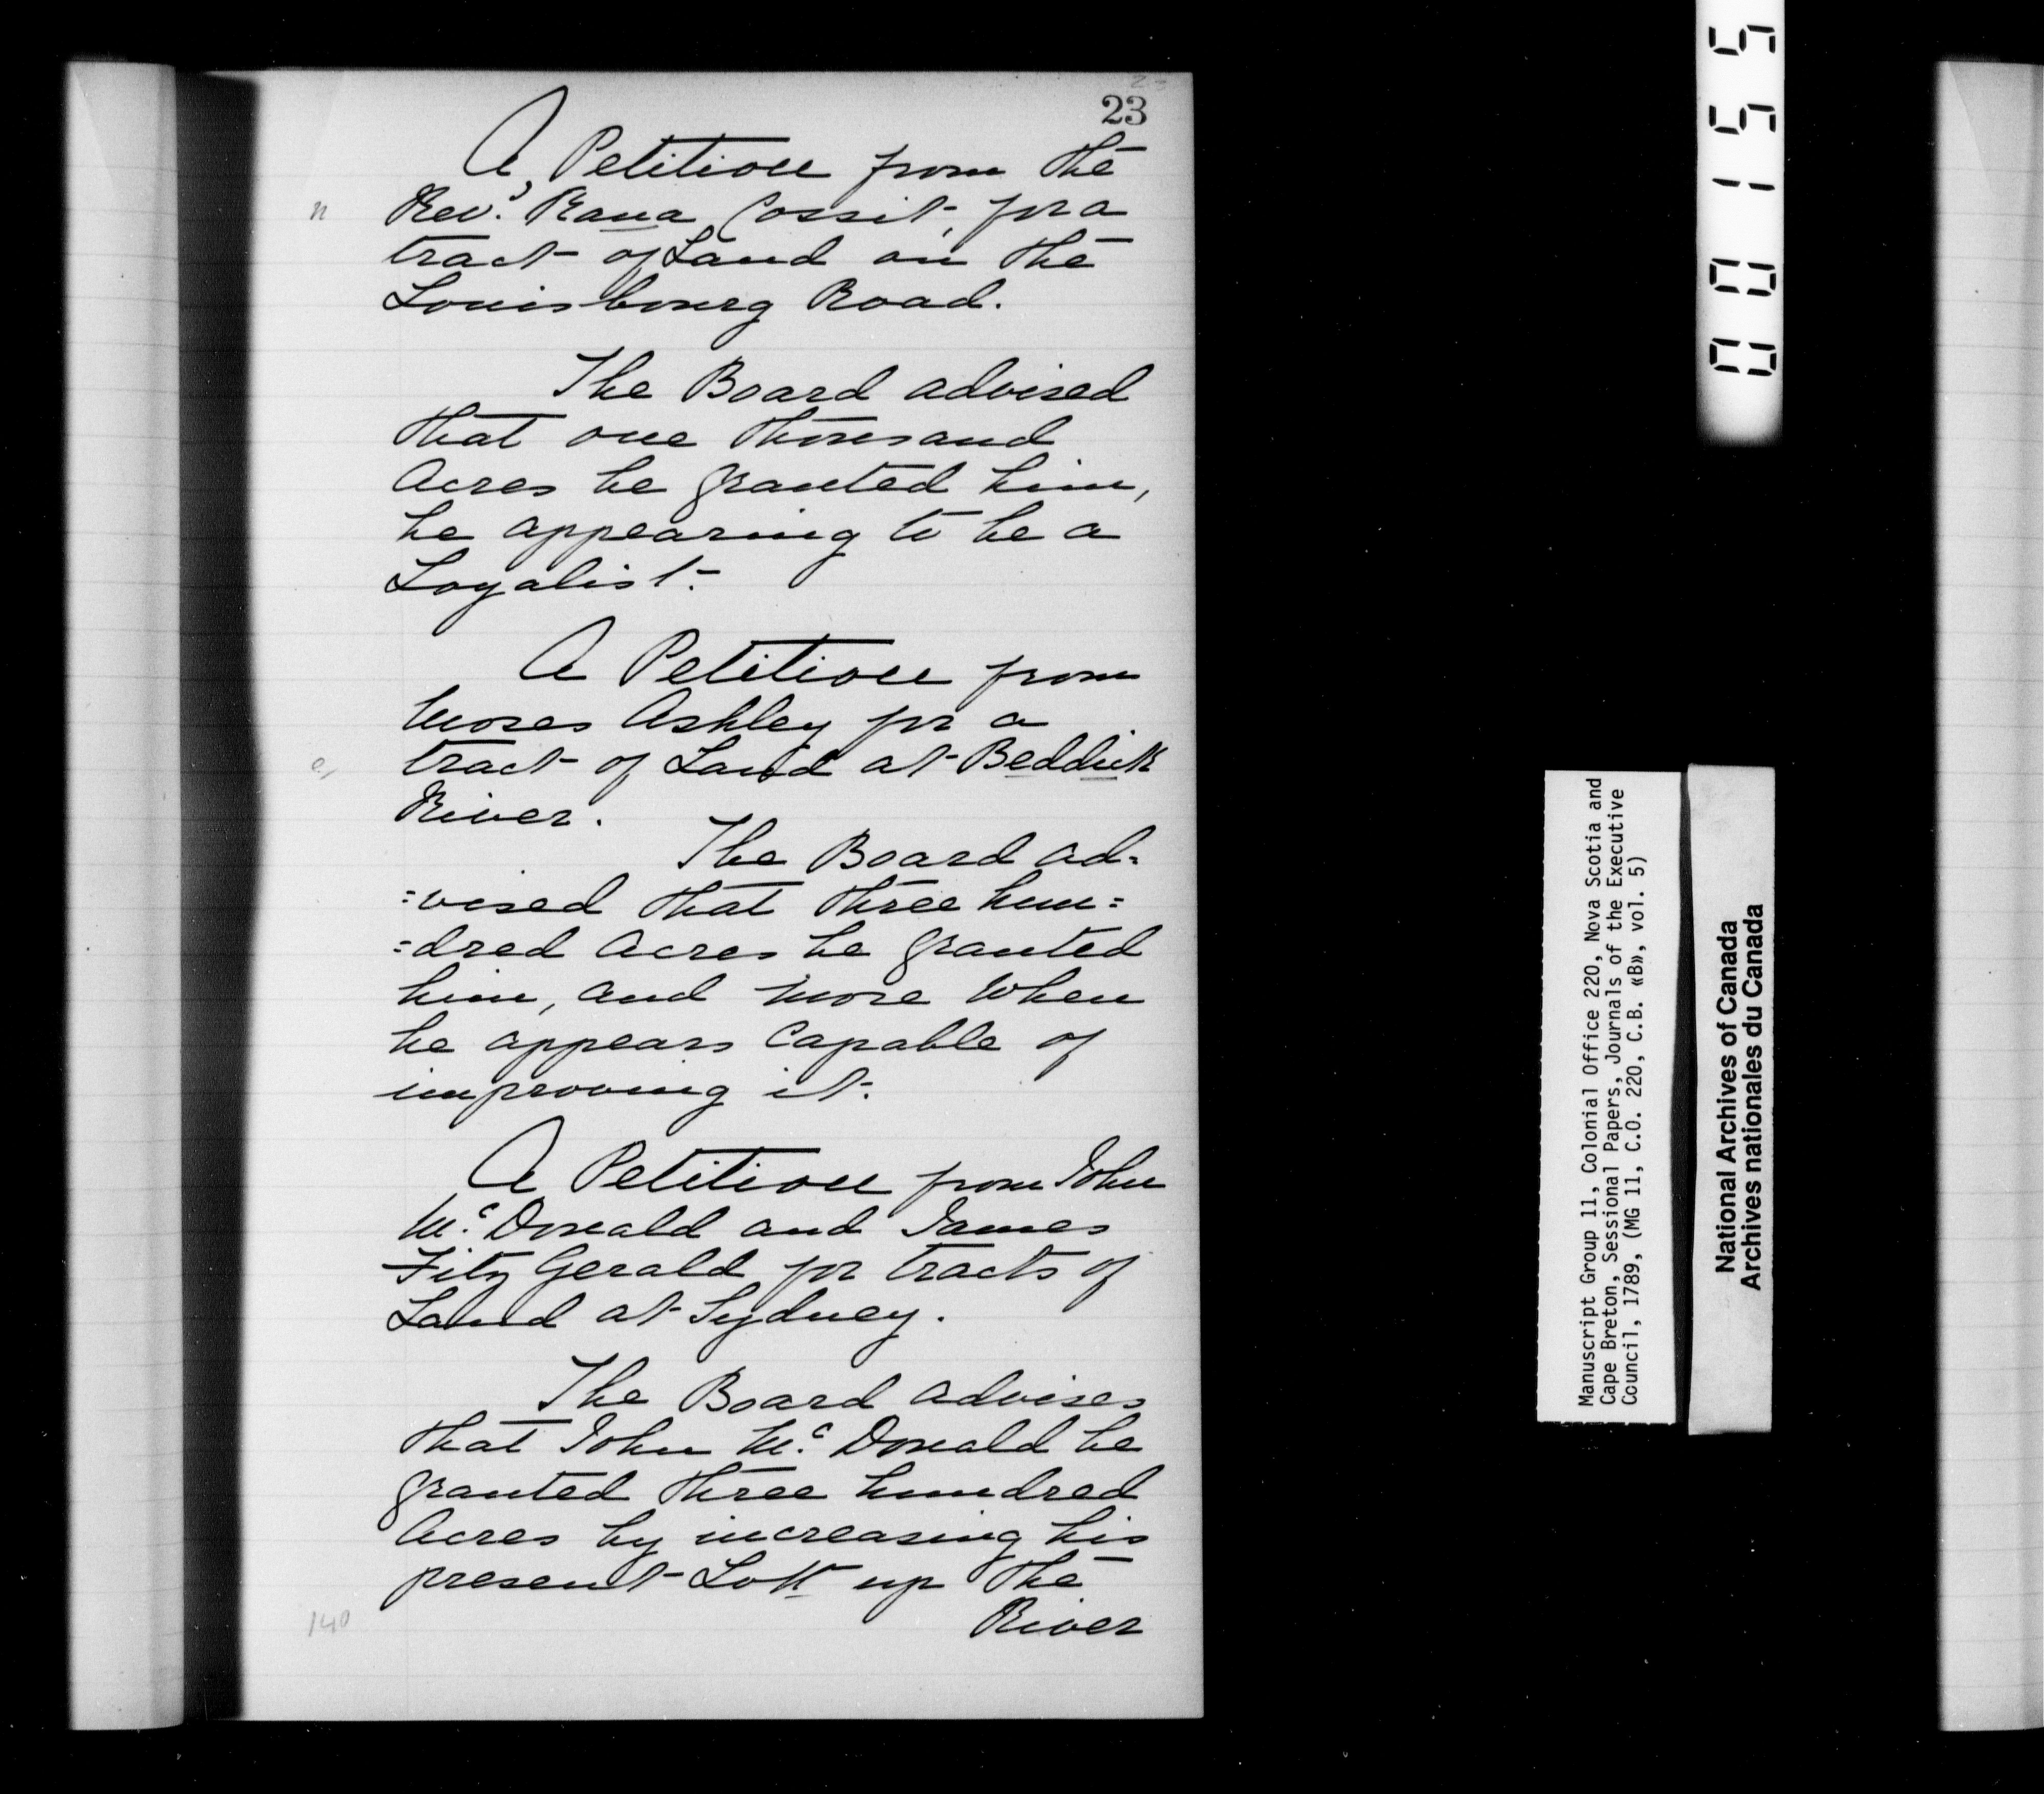 23
A Petition from the
Rev.d Rana Cossit, for a
n
tract of Land on the
Louisbourg Road.
The Board advised
that one thousand
Acres be granted him,
he appearing to be a
Loyalist.
A Petition from
Moses Ashley for a
tract of Land at Bedduck
River.
The Board ad=
=vised that three hun=
=dred Acres be granted
him, and more when
he appears Capable of
improving it.
A Petition from John
Mc. Donald and James
Fitz Gerald for tracts of
Land at Sydney.
The Board advises
that John Mc. Donald be
granted three hundred
Acres by increasing his
present Lott up the
River
140
00155
Manuscript Group 11, Colonial Office 220, Nova Scotia and
Cape Breton, Sessional Papers, Journals of the Executive
Council, 1789, (MG 11, C.O. 220, C.B. «B», vol. 5)
National Archives of Canada
Archives nationales du Canada